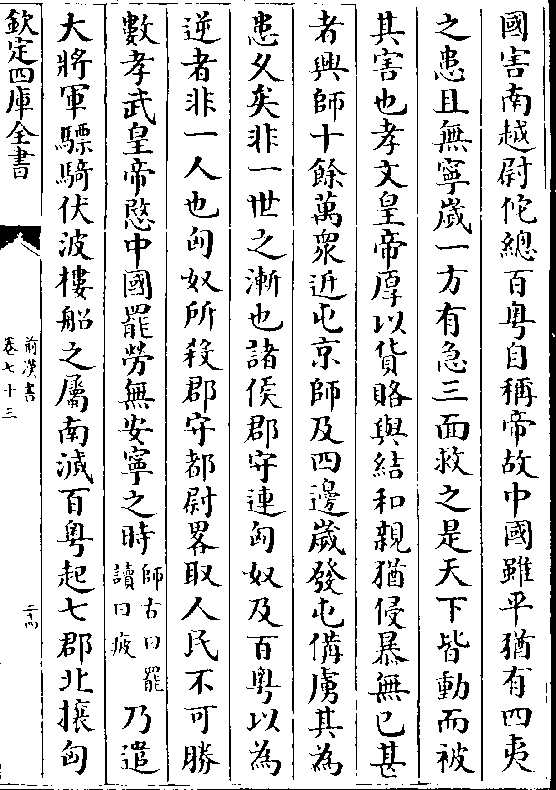 國害南越尉佗總百粤自稱帝故中國雖平猶有四夷
之患且無寧嵗一方有急三面救之是天下皆動而被
其害也孝文皇帝厚以貨賂與結和親猶侵暴無已甚
者興師十餘萬衆近屯京師及四邊嵗發屯備虜其為
患久矣非一世之漸也諸侯郡守連匈奴及百粤以為
逆者非一人也匈奴所殺郡守都尉畧取人民不可勝
數孝武皇帝愍中國罷勞無安寧之時師古曰罷讀曰疲乃遣
大將軍驃騎伏波樓船之屬南滅百粤起七郡北攘匈
欽定四庫全書
前漢書
卷七十三
二十四